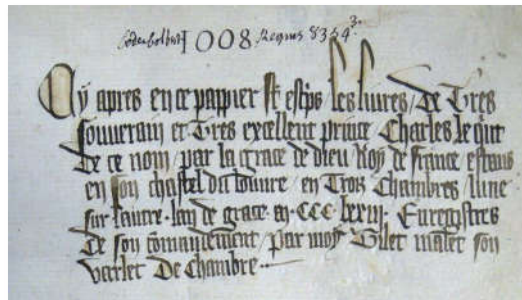 Codex Colbert 1008 Regius 8354 3.
Cy apres en ce pappier st escrips les livres / De Tres
souverain et Tres excellent prince / Charles le quit
De ce nom / par la grace de dieu / Roy de france / estans
en son chastel du louvre / en Trois Chambres / lune
sur lautre . lan de grace . m . CCC . lxxiij . Enregistres
De son comandement / par moy Gilet malet son
varlet De Chambre